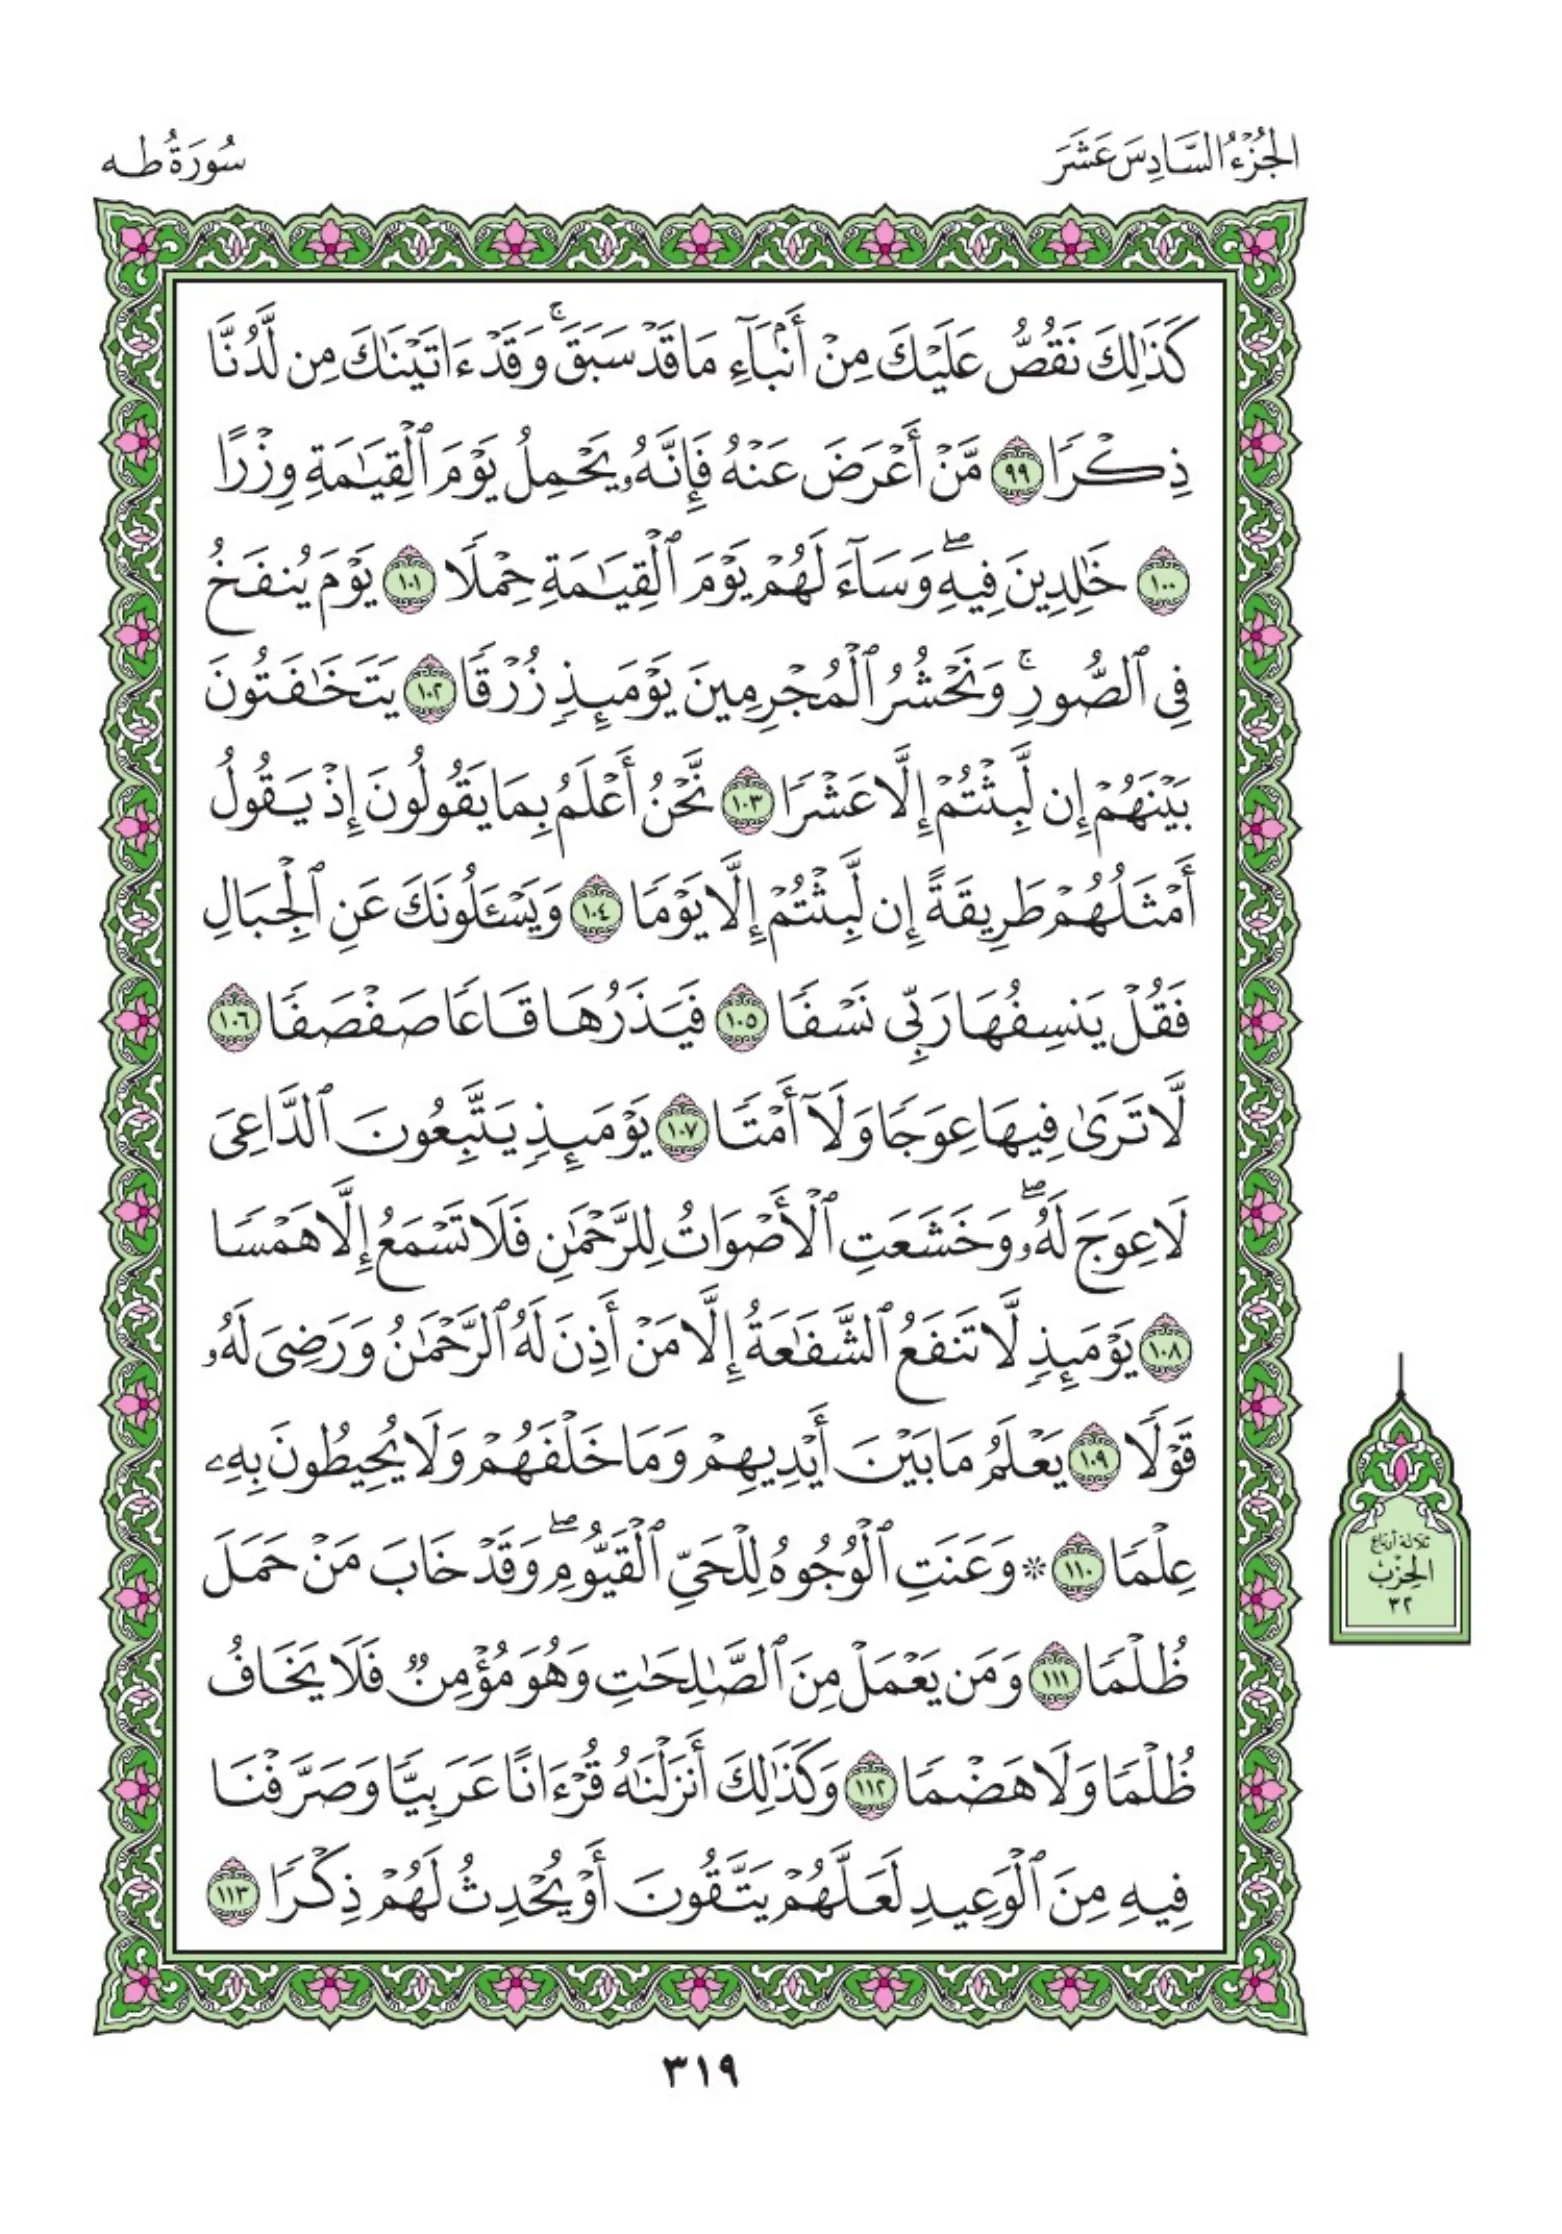 الجُزْءُ السَّادِسَ عَشَرَ
سُورَةُ طه
كَذَٰلِكَ نَقُصُّ عَلَيْكَ مِنْ أَنۢبَآءِ مَا قَدْ سَبَقَۚ وَقَدْ ءَاتَيْنَٰكَ مِن لَّدُنَّا
ذِكْرًا ٩٩ مَّنْ أَعْرَضَ عَنْهُ فَإِنَّهُۥ يَحْمِلُ يَوْمَ ٱلْقِيَٰمَةِ وِزْرًا
١٠٠ خَٰلِدِينَ فِيهِۖ وَسَآءَ لَهُمْ يَوْمَ ٱلْقِيَٰمَةِ حِمْلًا ١٠١ يَوْمَ يُنفَخُ
فِى ٱلصُّورِۚ وَنَحْشُرُ ٱلْمُجْرِمِينَ يَوْمَئِذٍ زُرْقًا ١٠٢ يَتَخَٰفَتُونَ
بَيْنَهُمْ إِن لَّبِثْتُمْ إِلَّا عَشْرًا ١٠٣ نَّحْنُ أَعْلَمُ بِمَا يَقُولُونَ إِذْ يَقُولُ
أَمْثَلُهُمْ طَرِيقَةً إِن لَّبِثْتُمْ إِلَّا يَوْمًا ١٠٤ وَيَسْـَٔلُونَكَ عَنِ ٱلْجِبَالِ
فَقُلْ يَنسِفُهَا رَبِّى نَسْفًا ١٠٥ فَيَذَرُهَا قَاعًا صَفْصَفًا ١٠٦
لَّا تَرَىٰ فِيهَا عِوَجًا وَلَآ أَمْتًا ١٠٧ يَوْمَئِذٍ يَتَّبِعُونَ ٱلدَّاعِىَ
لَا عِوَجَ لَهُۥۖ وَخَشَعَتِ ٱلْأَصْوَاتُ لِلرَّحْمَٰنِ فَلَا تَسْمَعُ إِلَّا هَمْسًا
١٠٨ يَوْمَئِذٍ لَّا تَنفَعُ ٱلشَّفَٰعَةُ إِلَّا مَنْ أَذِنَ لَهُ ٱلرَّحْمَٰنُ وَرَضِىَ لَهُۥ
قَوْلًا ١٠٩ يَعْلَمُ مَا بَيْنَ أَيْدِيهِمْ وَمَا خَلْفَهُمْ وَلَا يُحِيطُونَ بِهِۦ
عِلْمًا ١١٠ ۞ وَعَنَتِ ٱلْوُجُوهُ لِلْحَىِّ ٱلْقَيُّومِۖ وَقَدْ خَابَ مَنْ حَمَلَ
ظُلْمًا ١١١ وَمَن يَعْمَلْ مِنَ ٱلصَّٰلِحَٰتِ وَهُوَ مُؤْمِنٌ فَلَا يَخَافُ
ظُلْمًا وَلَا هَضْمًا ١١٢ وَكَذَٰلِكَ أَنزَلْنَٰهُ قُرْءَانًا عَرَبِيًّا وَصَرَّفْنَا
فِيهِ مِنَ ٱلْوَعِيدِ لَعَلَّهُمْ يَتَّقُونَ أَوْ يُحْدِثُ لَهُمْ ذِكْرًا ١١٣
ثلاثة أرباع
الحِزْب
٣٢
٣١٩